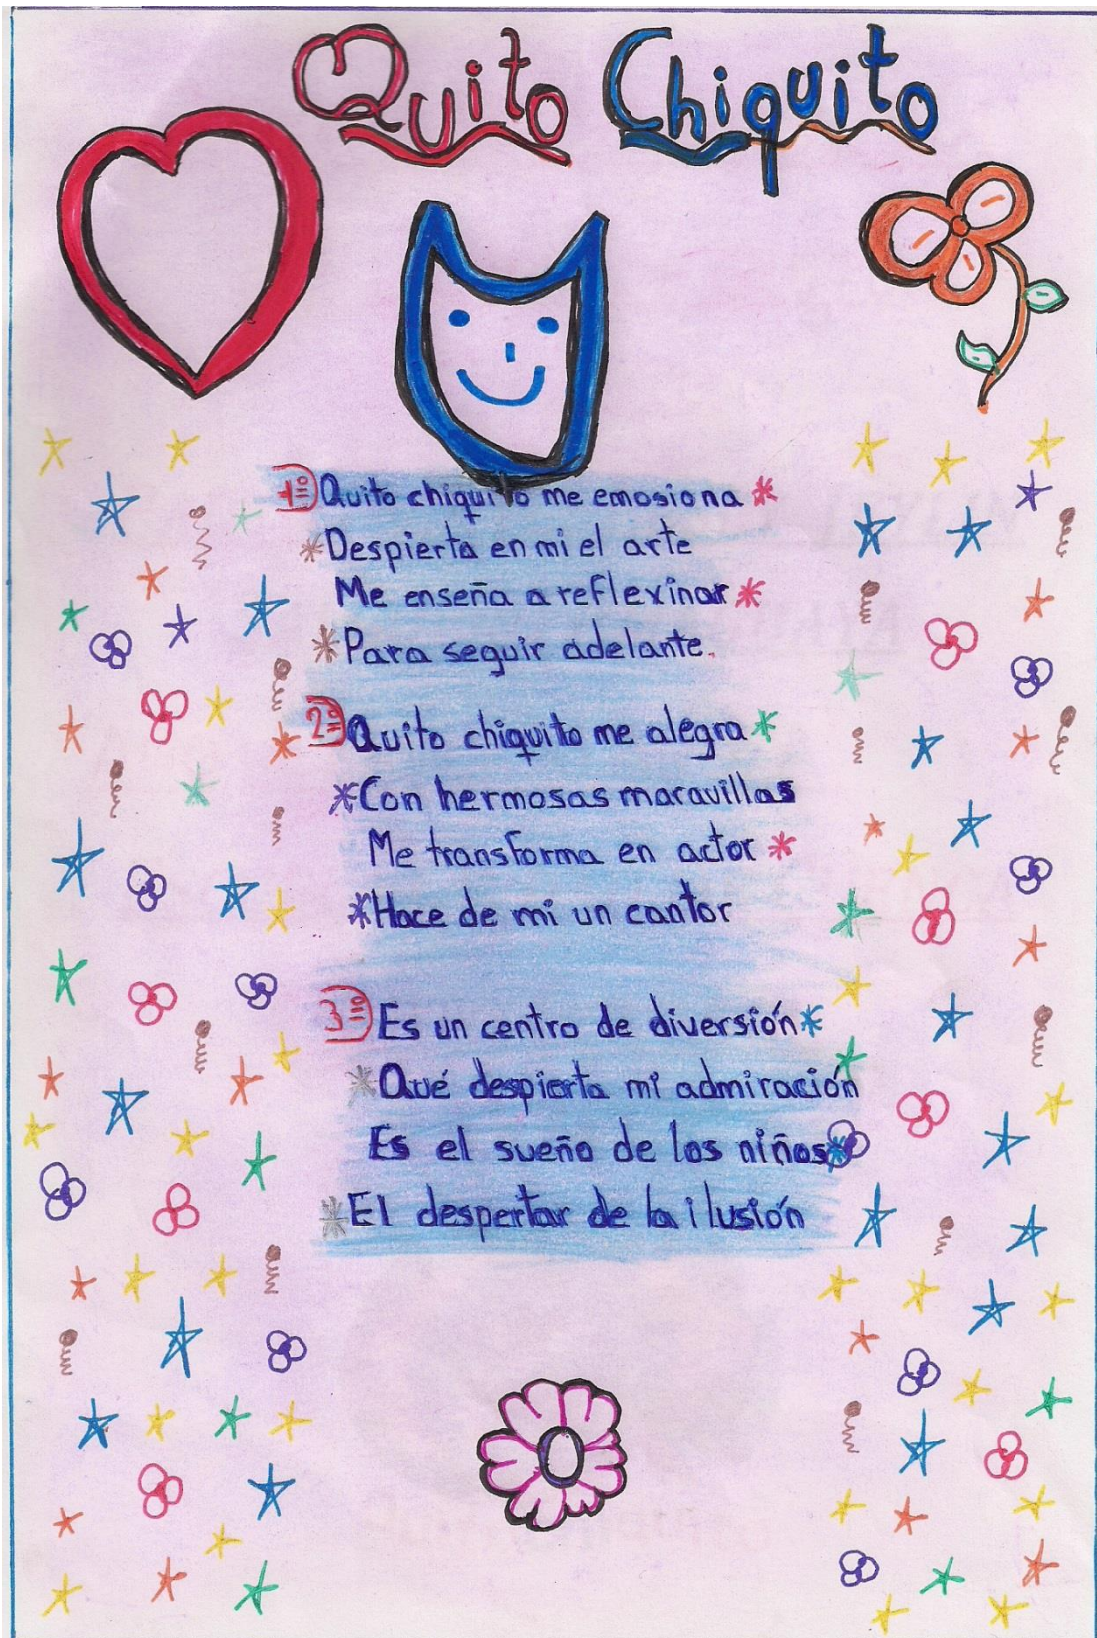 Quito Chiquito
1º) Quito chiquito me emosiona
Despierta en mi el arte
Me enseña a reflexinar
Para seguir adelante.
2º) Quito chiquito me alegra
Con hermosas maravillas
Me transforma en actor
Hace de mi un cantor
3º) Es un centro de diversión
Qué despierta mi admiración
Es el sueño de los niños
El despertar de la ilusión